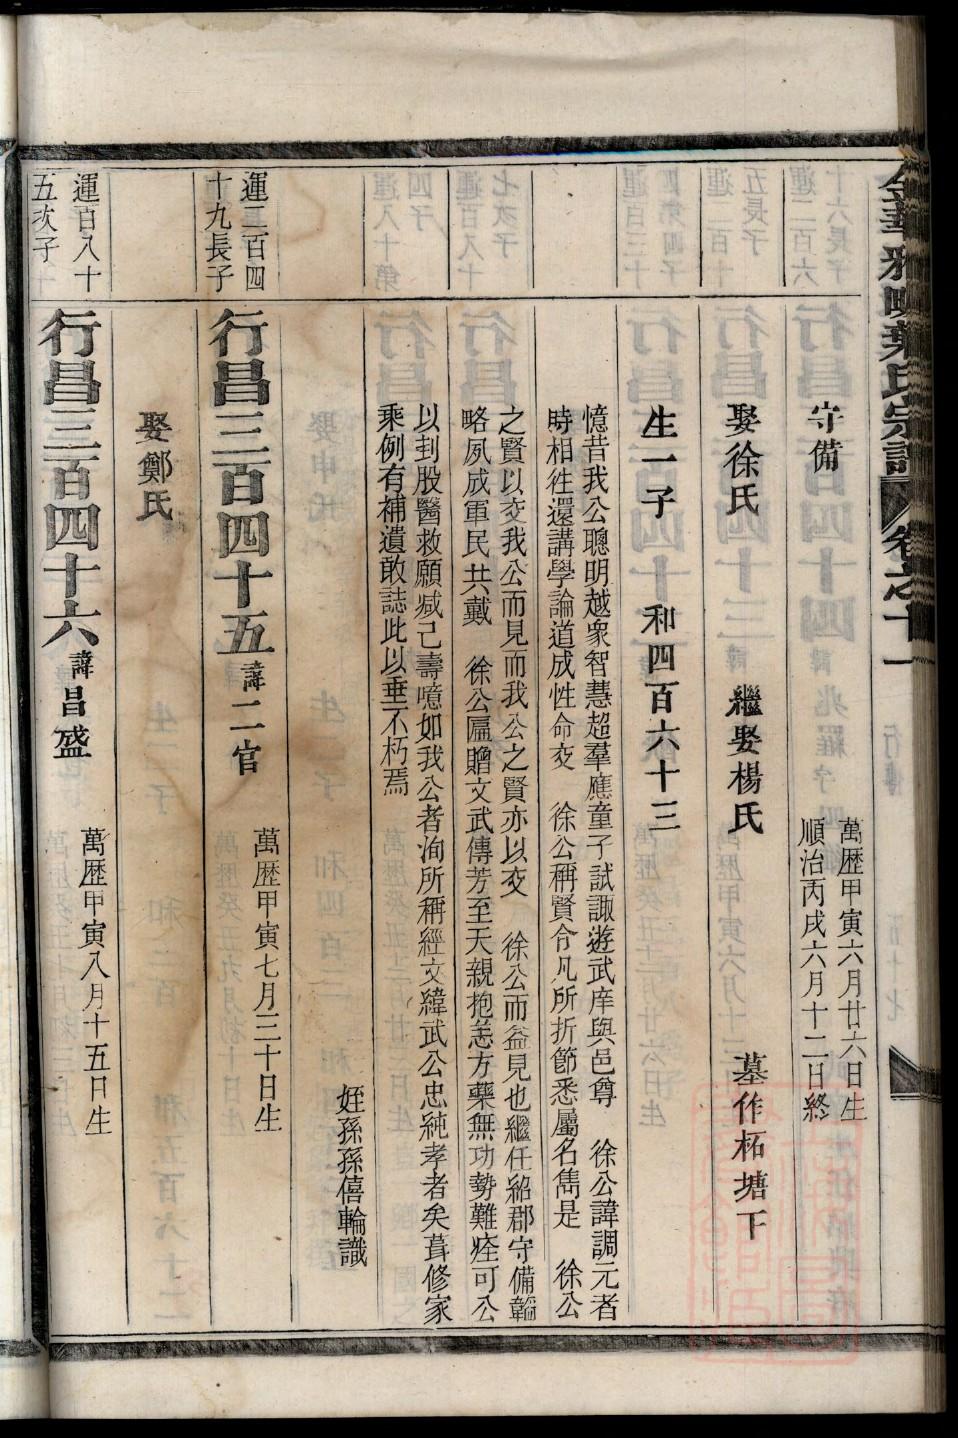 守備
萬歷甲寅六月廿六日生
順治丙戌六月十二日終
娶徐氏 繼娶楊氏 墓作柘塘下
生一子 和四百六十三
憶昔我公聰明越衆智慧超羣應童子試諏遊武庠與邑尊 徐公諱調元者
時相徃還講學論道成性命交 徐公稱賢合凡所折節悉屬名雋是 徐公
之賢以交我公而見而我公之賢亦以交 徐公而益見也繼任紹郡守備韜
略夙成軍民共戴 徐公匾贈文武傳芳至天親抱恙方藥無功勢難痊可公
以刲股醫救願減己壽噫如我公者洵所稱經文緯武公忠純孝者矣葺修家
乘例有補遺敢誌此以垂不朽焉
姪孫孫僖輪識
運二百四
十九長子
行昌三百四十五 諱二官
萬歷甲寅七月三十日生
娶鄭氏
運百八十
五次子
行昌三百四十六 諱昌盛
萬歷甲寅八月十五日生